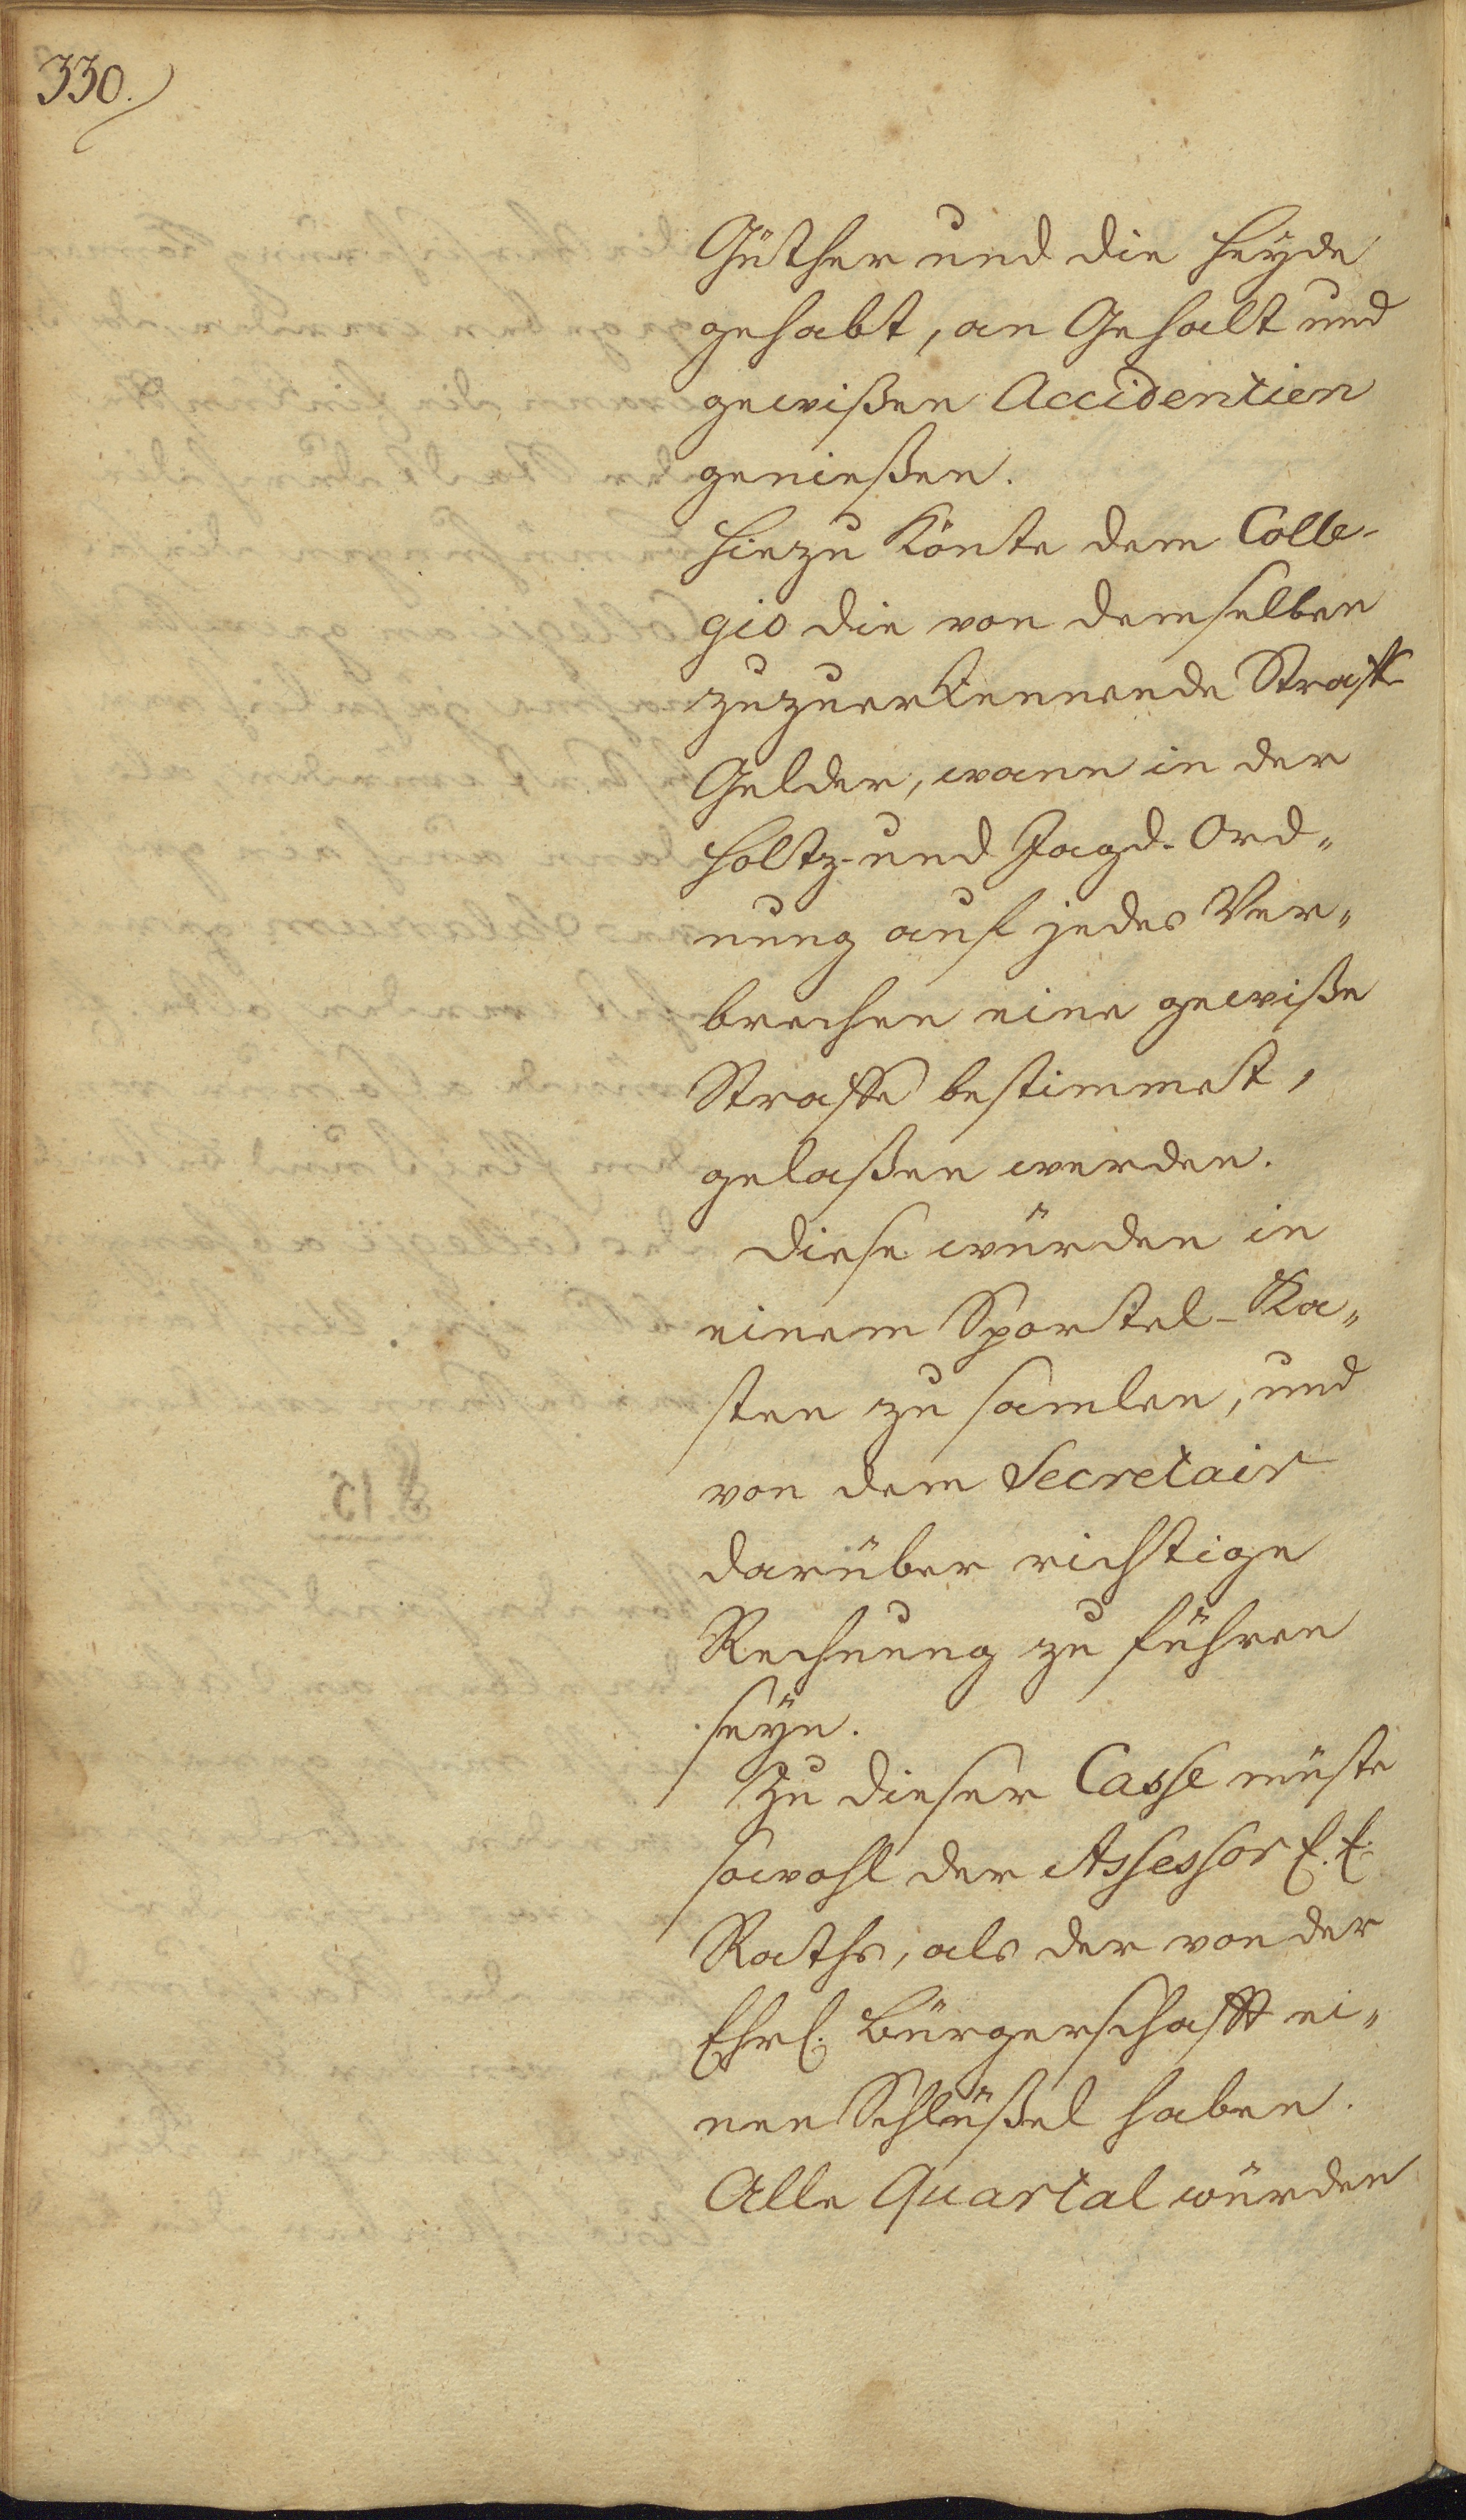 330.
Güther und die Heyde
gehabt, an Gehalt und
gewißen Accidentien
genießen.
Hiezu Könte dem Colle-
gio die von demselben
zuzuerkennende Straff-
Gelder, wann in der
Holtz- und Jagd-Ord„
nung auf jedes Ver„
brechen eine gewiße
Straffe bestimmet,
gelaßen werden.
Diese würden in
einem Sportel-Ka„
sten zu samlen, und
von dem Secretair
darüber richtige
Rechnung zu führen
seyn.
Zu dieser Casse müste
sowohl der Assessor E. E.
Raths, als der von der
Ehrl. Bürgerschafft ei„
nen Schlüßel haben.
Alle Quartal würden